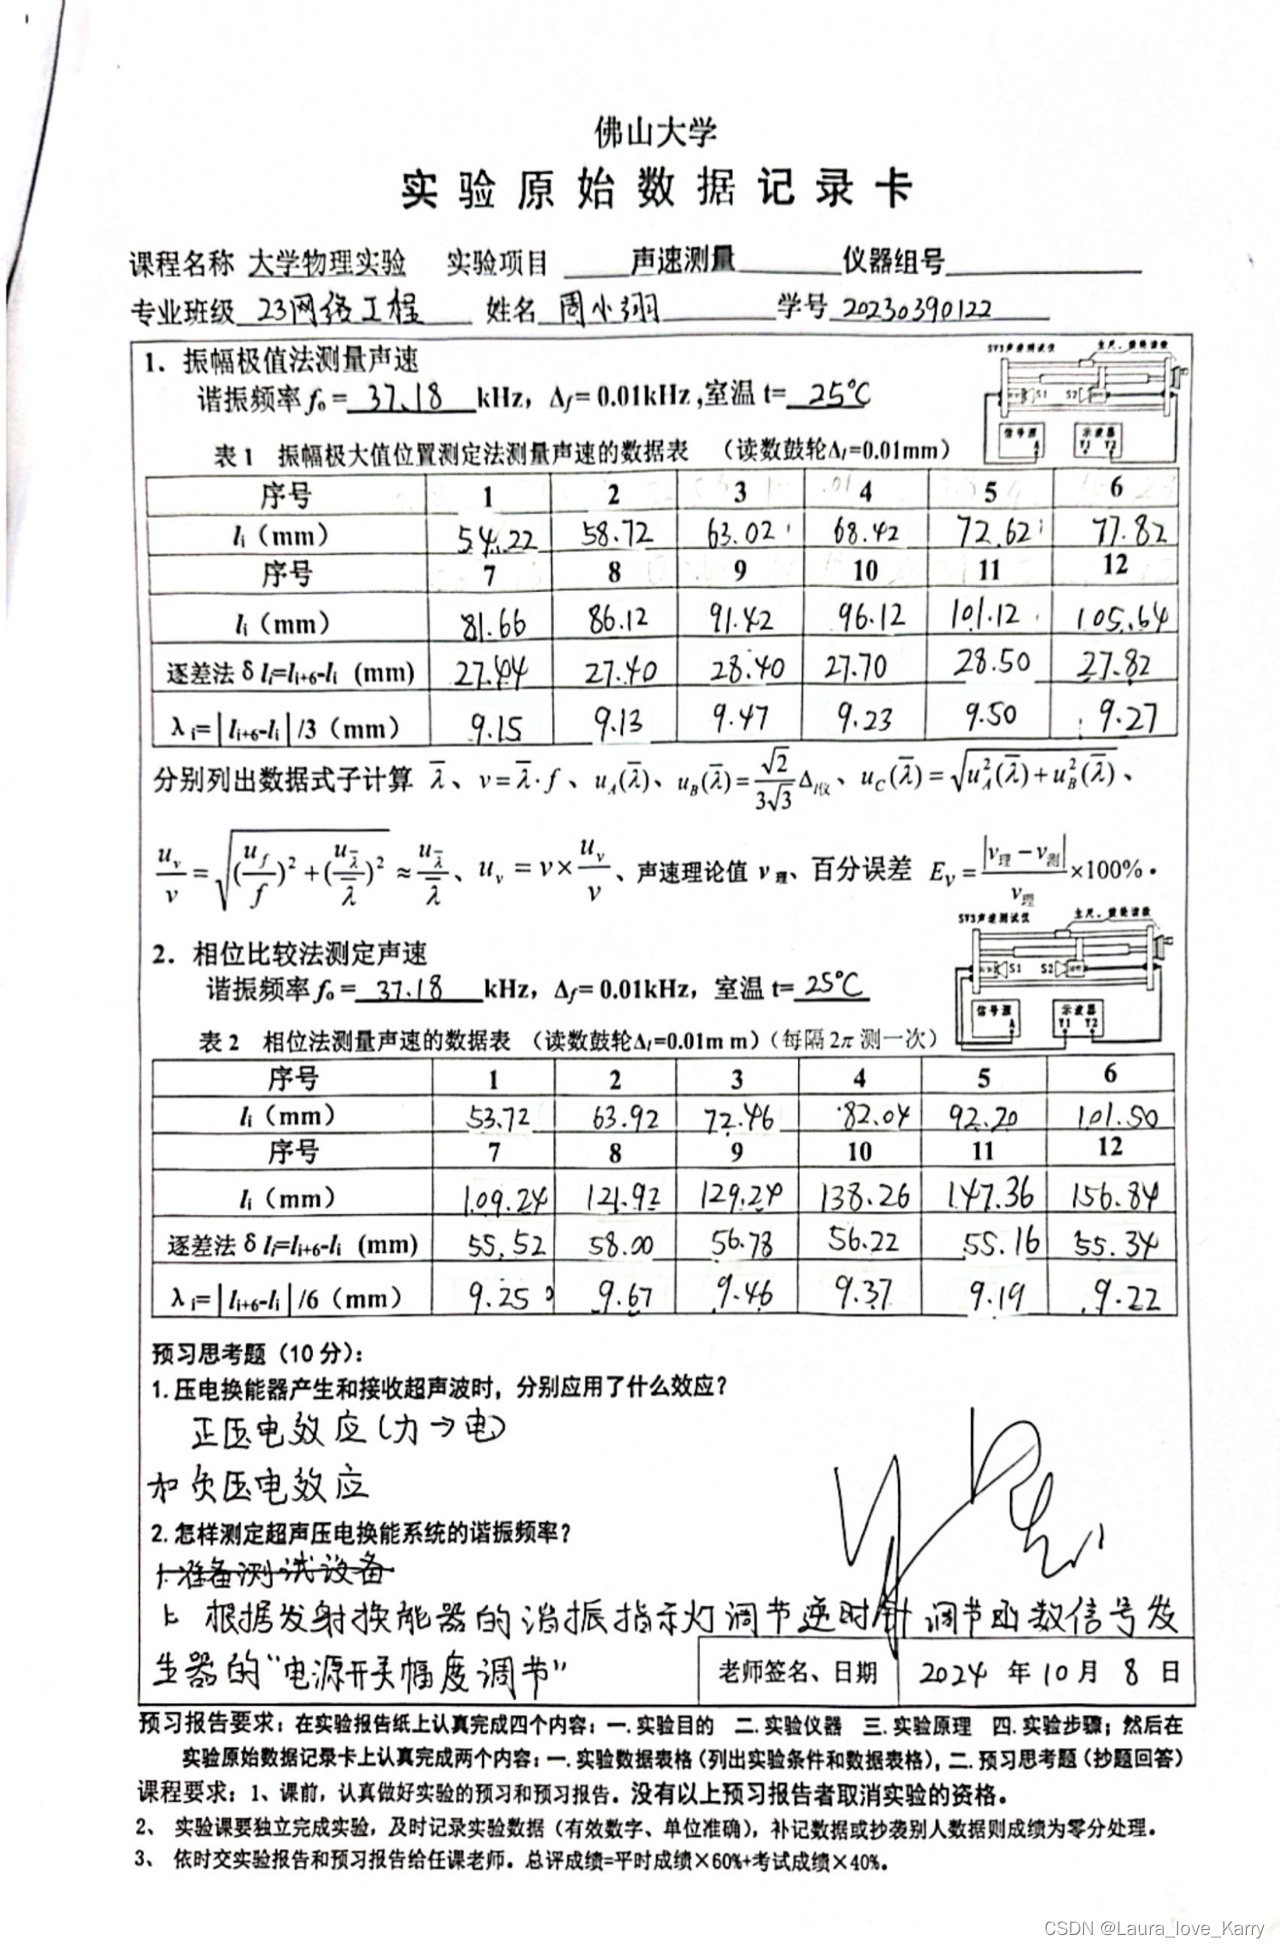 佛山大学
实验原始数据记录卡
课程名称 大学物理实验 实验项目 声速测量 仪器组号
专业班级 23网络工程 姓名 周小翊 学号 20230390122
1．振幅极值法测量声速
谐振频率 f₀ = 37.18 kHz，Δf = 0.01kHz ,室温 t= 25℃
SV3声速测试仪 主尺、鼓轮读数
S1 S2
信号源 示波器
A Y1 Y2
表 1 振幅极大值位置测定法测量声速的数据表 （读数鼓轮Δl=0.01mm）
序号 1 2 3 4 5 6
li（mm） 54.22 58.72 63.02 68.42 72.62 77.82
序号 7 8 9 10 11 12
li（mm） 81.66 86.12 91.42 96.12 101.12 105.64
逐差法 δ li=li+6-li (mm) 27.44 27.40 28.40 27.70 28.50 27.82
λi=|li+6-li|/3（mm） 9.15 9.13 9.47 9.23 9.50 9.27
分别列出数据式子计算 λ̅、v=λ̅·f、uA(λ̅)、uB(λ̅)=√2/3√3 Δl仪、uC(λ̅)=√uA²(λ̅)+uB²(λ̅)、
uv/v=√(uf/f)²+(uλ̅/λ̅)²≈uλ̅/λ̅、uv=v×uv/v、声速理论值 v理、百分误差 Ev=|v理−v测|/v理×100%．
SV3声速测试仪 主尺、鼓轮读数
S1 S2
信号源 示波器
A Y1 Y2
2．相位比较法测定声速
谐振频率 f₀ = 37.18 kHz，Δf = 0.01kHz，室温 t= 25℃
表 2 相位法测量声速的数据表 （读数鼓轮Δl=0.01m m）（每隔 2π 测一次）
序号 1 2 3 4 5 6
li（mm） 53.72 63.92 72.46 82.04 92.20 101.50
序号 7 8 9 10 11 12
li（mm） 109.24 121.92 129.24 138.26 147.36 156.84
逐差法 δ li=li+6-li (mm) 55.52 58.00 56.78 56.22 55.16 55.34
λi=|li+6-li|/6（mm） 9.25 9.67 9.46 9.37 9.19 9.22
预习思考题（10 分）：
1.压电换能器产生和接收超声波时，分别应用了什么效应？
正压电效应（力→电）
和负压电效应
2.怎样测定超声压电换能系统的谐振频率？
1.准备测试设备
1. 根据发射换能器的谐振指示灯调节逆时针调节函数信号发
生器的“电源开关幅度调节”
老师签名、日期 2024 年 10 月 8 日
预习报告要求：在实验报告纸上认真完成四个内容：一.实验目的 二.实验仪器 三.实验原理 四.实验步骤；然后在
实验原始数据记录卡上认真完成两个内容：一.实验数据表格（列出实验条件和数据表格），二.预习思考题（抄题回答）
课程要求：1、课前，认真做好实验的预习和预习报告。没有以上预习报告者取消实验的资格。
2、 实验课要独立完成实验，及时记录实验数据（有效数字、单位准确），补记数据或抄袭别人数据则成绩为零分处理。
3、 依时交实验报告和预习报告给任课老师。总评成绩=平时成绩×60%+考试成绩×40%。
CSDN @Laura_love_Karry